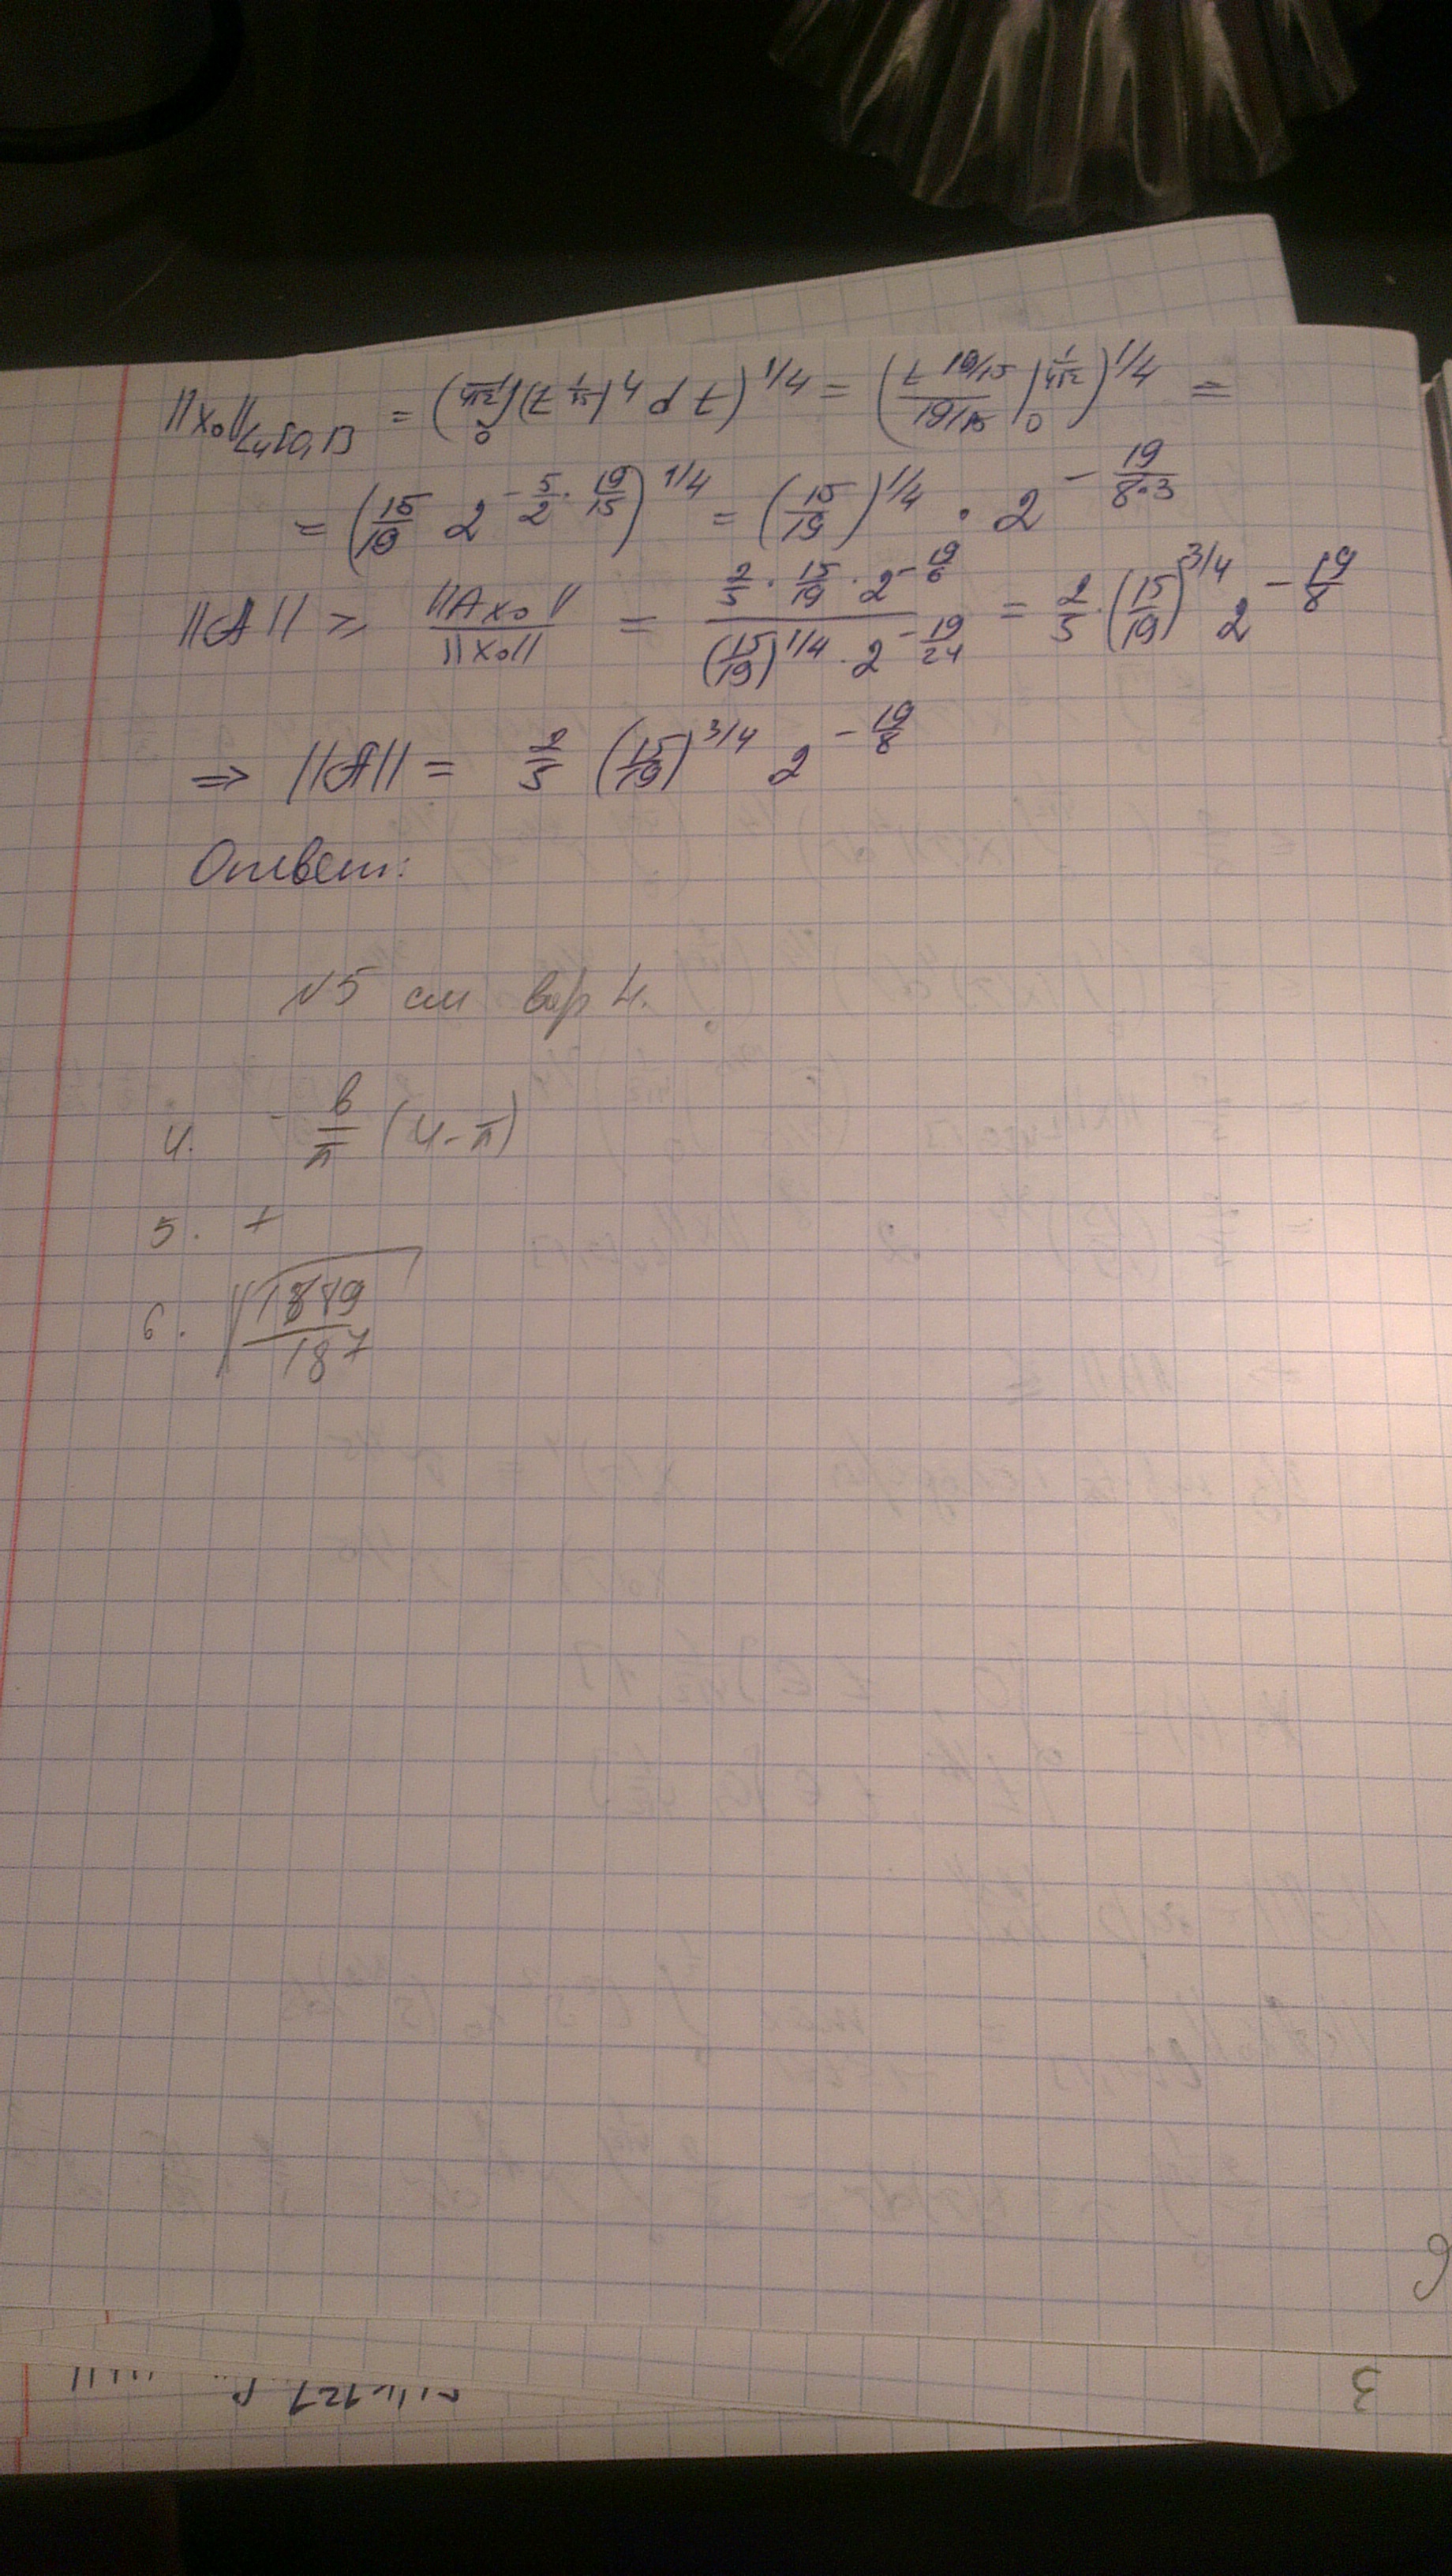 ||x₀||_{L₄[0,1]} = (∫₀^{1/(4√2)} (τ^{1/15})⁴ dτ)^{1/4} = (τ^{19/15}/(19/15) |₀^{1/(4√2)})^{1/4} =
= (15/19 2^{-5/2·19/15})^{1/4} = (15/19)^{1/4} · 2^{-19/(8·3)}
||A|| ≥ ||Ax₀||/||x₀|| = (2/5 · 15/19 · 2^{-19/6})/((15/19)^{1/4} · 2^{-19/24}) = 2/5 · (15/19)^{3/4} 2^{-19/8}
⇒ ||A|| = 2/5 (15/19)^{3/4} 2^{-19/8}
Ответ:
№5 см вар 4.
4. - 8/π (4-π)
5. +
6. √(1889/187)
6
3